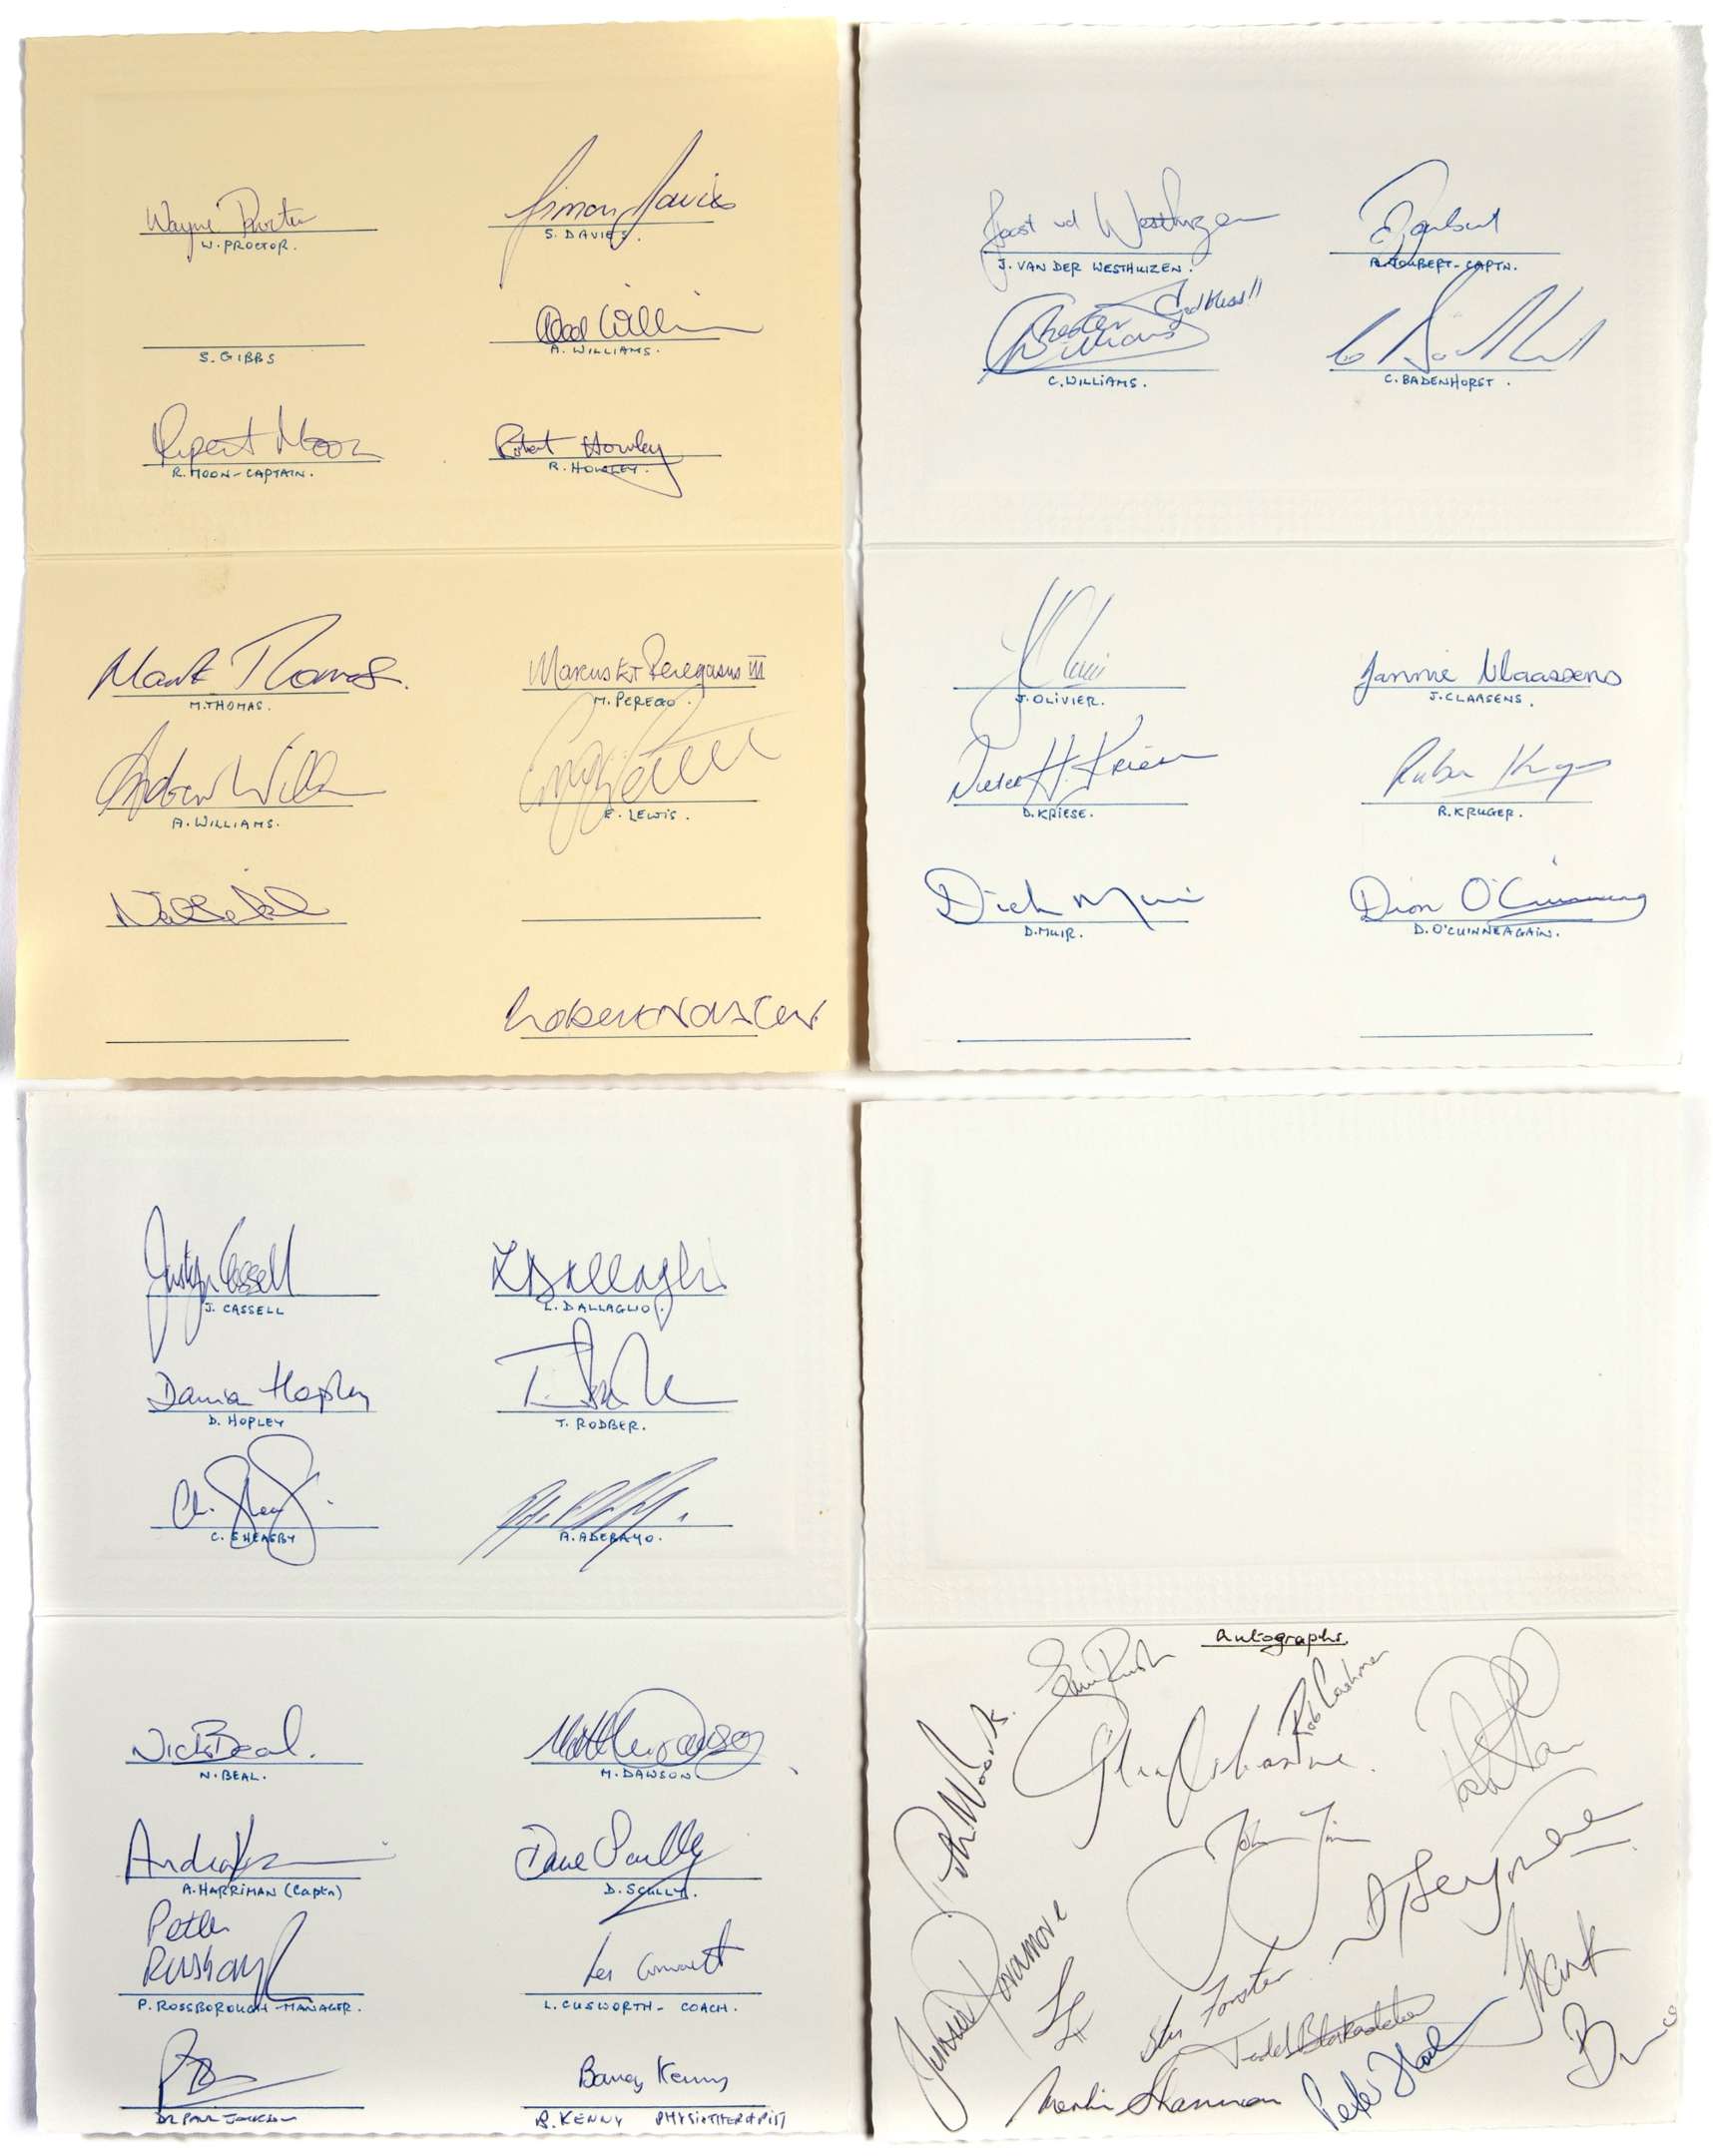 Wayne Proctor
W. PROCTOR.
Simon Davies
S. DAVIES.
S. GIBBS
A. WILLIAMS.
Rupert Moon
R. MOON - CAPTAIN.
Robert Howley
R. HOWLEY.
Mark Thomas.
M. THOMAS.
III
M. PEREGO.
Andrew Will
A. WILLIAMS.
E. LEWIS.
Joost vd Westhuizen
J. VAN DER WESTHUIZEN.
Joubert
A. JOUBERT - CAPTN.
Chester Williams God bless!!
C. WILLIAMS.
C. BADENHORST.
J Olivier
J. OLIVIER.
Jannie Claassens
J. CLAASENS.
H. Kriese
D. KRIESE.
Ruben Kruger
R. KRUGER.
Dick Muir
D. MUIR.
Dion O'Cuinneagain
D. O'CUINNEAGAIN.
Justyn Cassell
J. CASSELL
L Dallaglio
L. DALLAGLIO.
Damian Hopley
D. HOPLEY
T. RODBER.
C. SHEASBY
A. ADEBAYO.
Nick Beal.
N. BEAL.
Matthew Dawson
M. DAWSON.
Andrew
A. HARRIMAN (Captn)
Dave Scully
D. SCULLY.
Peter
P. ROSSBOROUGH - MANAGER.
Les Cusworth
L. CUSWORTH - COACH.
DR PAUL JACKSON
Barney Kenny
B. KENNY PHYSIOTHERAPIST
Autographs.
Eric Rush
Rob Cashman
Glen Osborne.
John Tim
D Seymour
Junior Paramore
Stu Forster
Todd Blackadder
Merlin Shannon
Peter